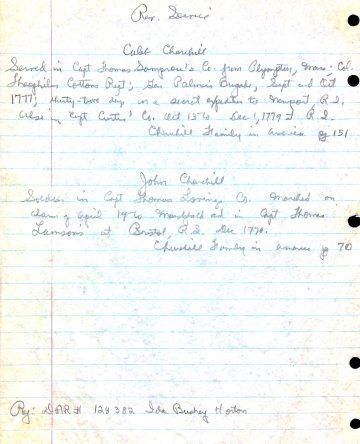 Rev. Service
Caleb Churchill
Served in Capt Thomas Sampson's Co. from Plympton, Mass; Col.
Theophilus Cottons Regt; Gen Palmers Brigade, Sept and Oct
1777; thirty-two days on a secret expedition to Newport, R.I.,
also in Capt Co. Oct 13 to Dec 1, 1779 at R.I.
Churchill Family in America pg 151
John Churchill
Soldier in Capt Thomas Co. Marched on
alarm of April 19 to Marshfield and in Capt Thomas
at Bristol, R.I. Dec
Churchill Family in America pg 70
DAR # 128382 Ida Horton